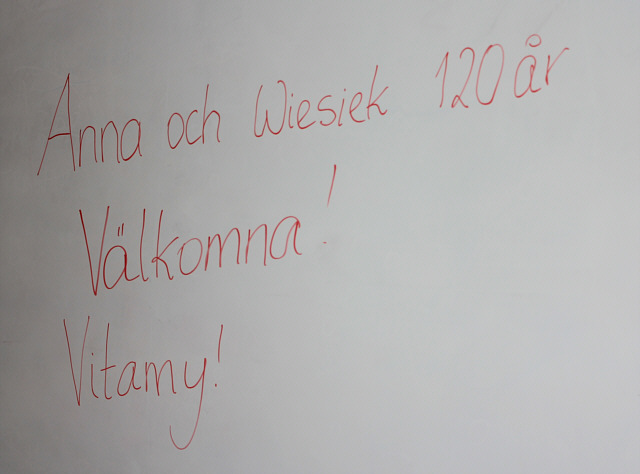 Anna och Wiesiek 120 år
Välkomna!
Vitamy!